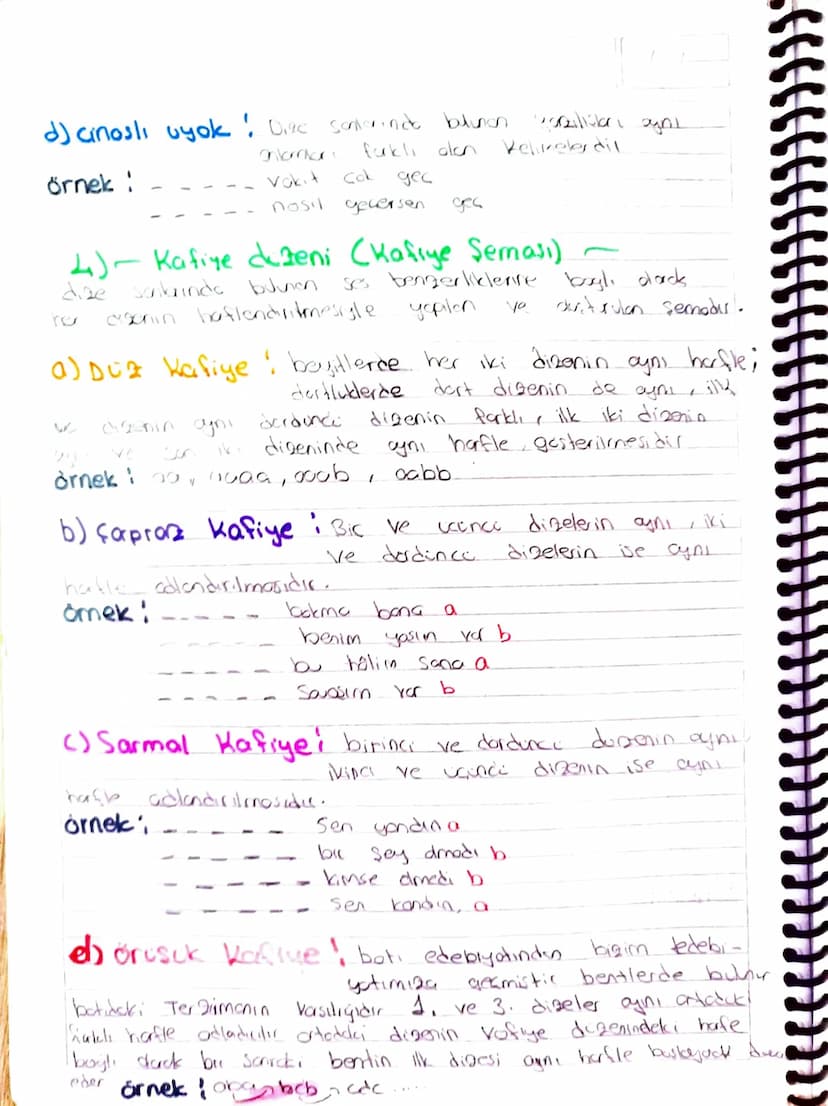 d) cinaslı uyak : Dize sonlarında bulunan yazılışları aynı
anlamları farklı olan kelimelerdir
örnek : - - - - - vakit çok geç
- - - - - nasıl geçersen geç
4) - Kafiye düzeni (Kafiye Şeması) -
dize sonlarında bulunan ses benzerliklerine bağlı olarak
her dizenin harflendirilmesiyle yapılan ve oluşturulan şemadır.
a) Düz Kafiye : beyitlerde her iki dizenin aynı harfle;
dörtlüklerde dört dizenin de aynı, ilk
üç dizenin aynı dördüncü dizenin farklı, ilk iki dizenin
aynı ve son iki dizeninde aynı harfle gösterilmesidir
örnek : aa, aaaa, aaab, aabb
b) Çapraz Kafiye : Bir ve üçüncü dizelerin aynı, iki
ve dördüncü dizelerin ise aynı
harfle adlandırılmasıdır.
örnek : - - - - - bakma bana a
- - - - - benim yaşım var b
- - - - - bu hâlim sana a
- - - - - savaşım var b
c) Sarmal Kafiye : birinci ve dördüncü dizenin aynı
ikinci ve üçüncü dizenin ise aynı
harfle adlandırılmasıdır.
örnek : - - - - - sen yandın a
- - - - - bir şey dmadı b
- - - - - kimse dmedi b
- - - - - sen kandın, a
d) Örüşük Kafiye : batı edebiyatından bizim edebi-
yatımıza geçmiştir bentlerde bulunur
batıdaki Terzimanın 1. ve 3. dizeler aynı ortadaki
farklı harfle adlandırılır ortadaki dizenin kafiye düzenindeki harfe
bağlı olarak bir sonraki bentin ilk dizesi aynı harfle başlayarak devam
eder örnek : aba, bcb, cdc .....